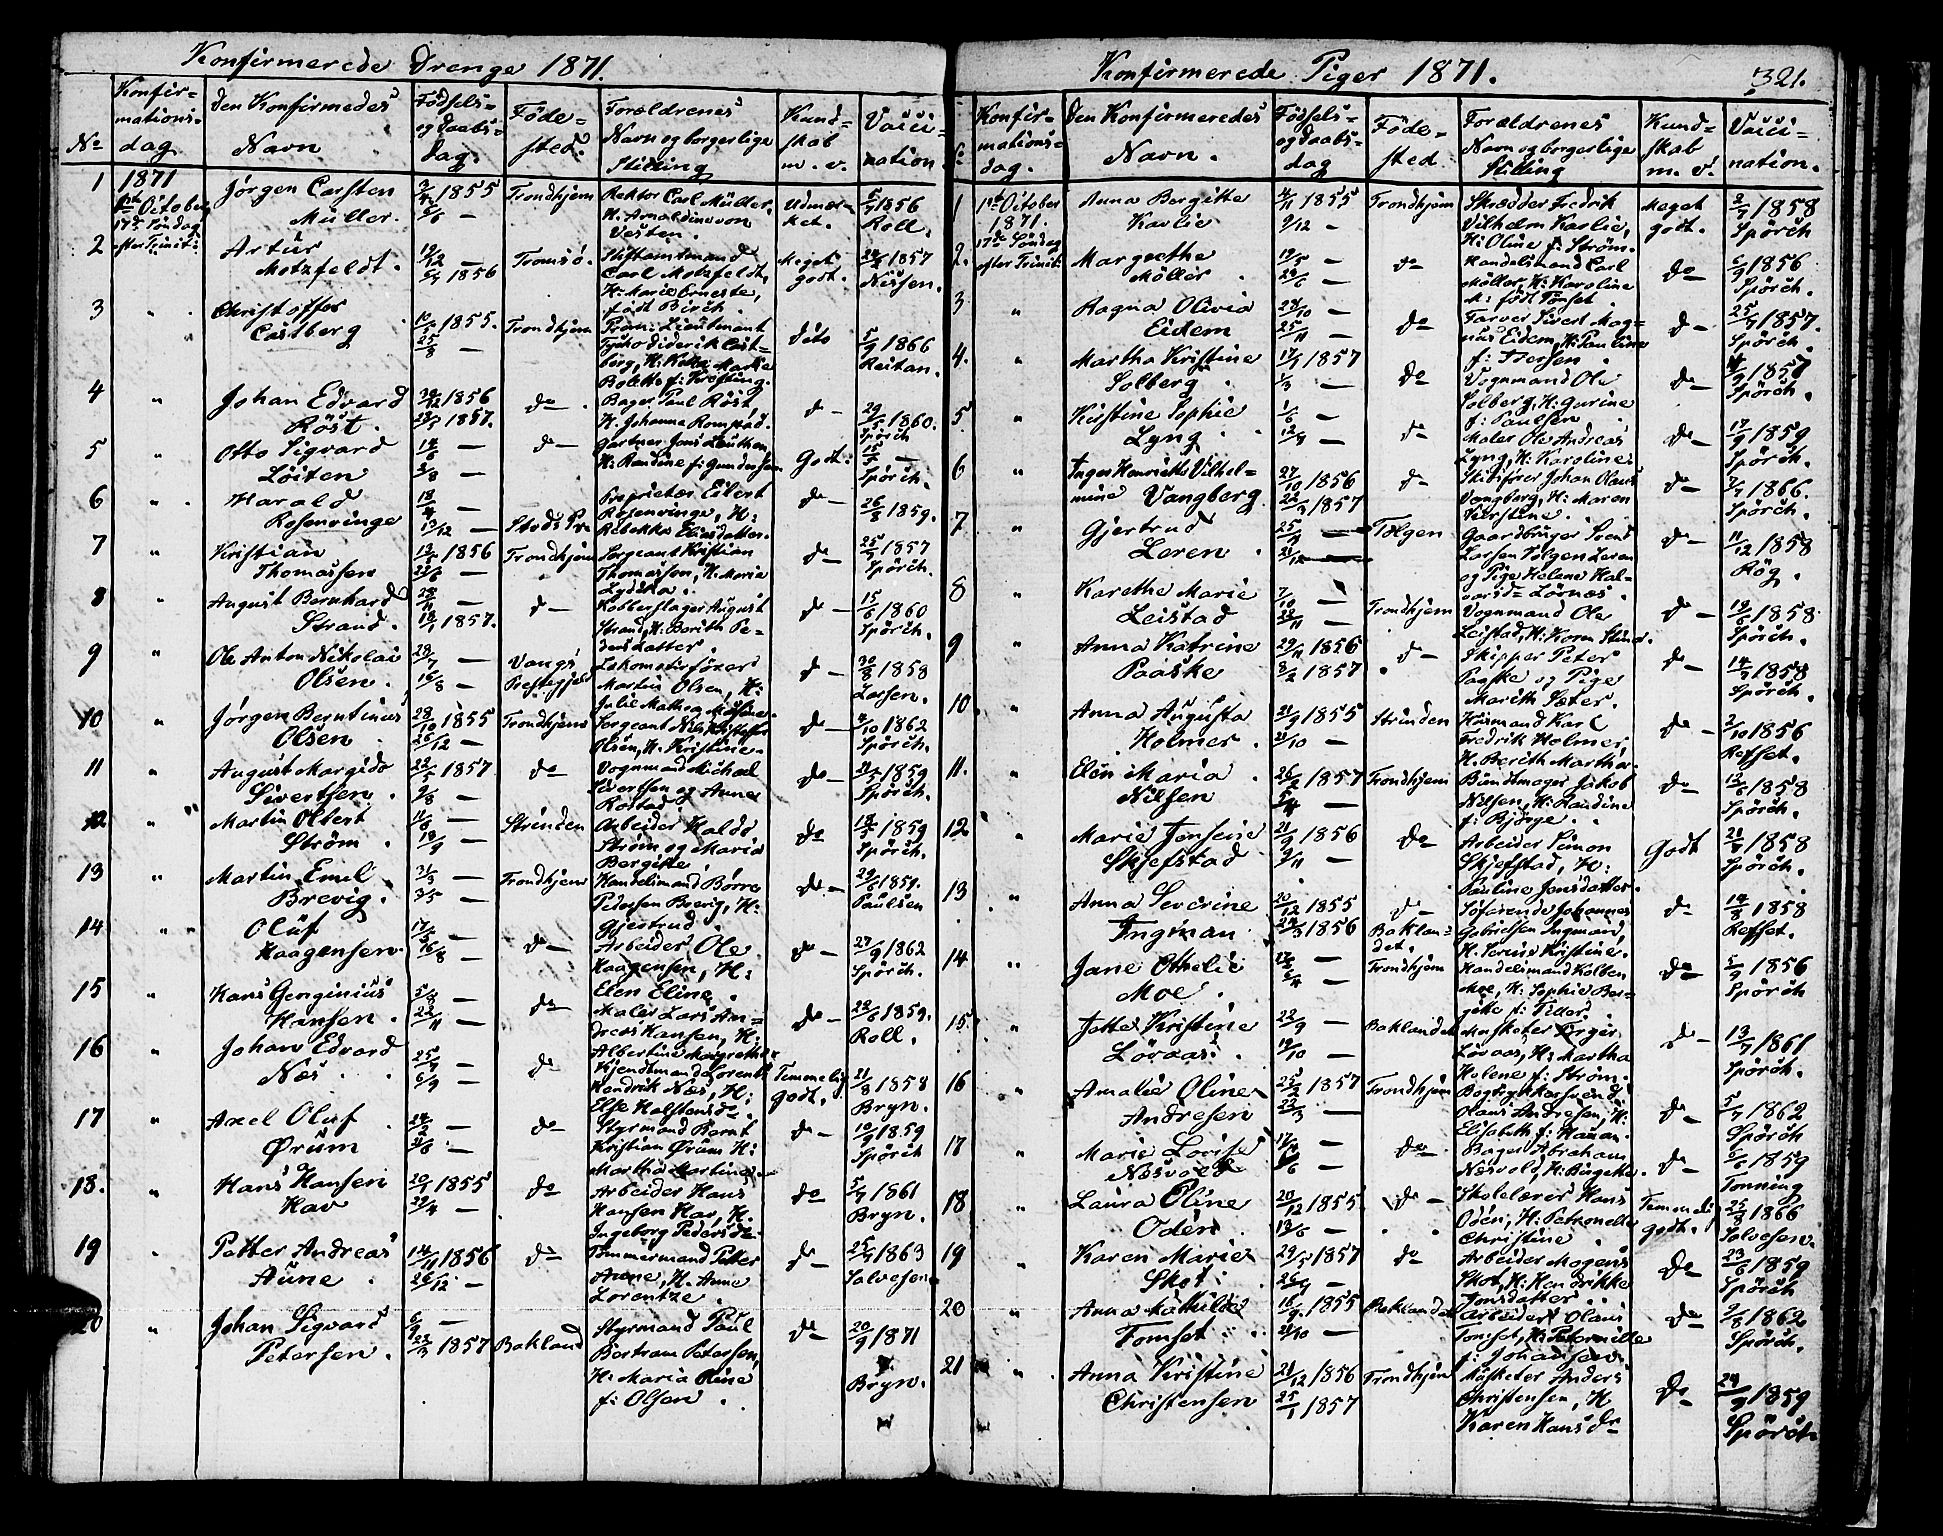 Konfirmerede Drenge 1871.
No
Konfir-
mations-
dag
Den Konfirmedes
Navn
Födsels-
og Daabs-
dag.
Föde-
sted.
Forældrenes
Navn og borgerlige
Stilling
Kund-
skab
m. v.
Vacci-
nation
1
1871
1ste October
17de Söndag
efter Trinit:
Jörgen Carsten
Müller.
1855
Trondhjem
Rektor Carl Müller,
H: Arnoldine von
Vesten.
Udmær-
ket.
1856
Roll.
2
Artur
Motzfeldt.
1856
Tromsö.
Stiftamtmand
Carl Motzfeldt,
H: Marie Erneste,
född Birch.
Meget
godt.
1857
Nissen.
3
Christoffer
Castberg
1855.
Trondhjem
Prem: Lieutnant
Tycho Diderik Cast-
berg, H:
Bolette f: Kresting.
dito
5/9 1866
Reitan.
4
Johan Edvard
Röst.
1856
1857.
do
Bager Paul Röst
H. Johanna Romstad.
do
1860.
Spörch
5
Otto Sigvard
Löiten
do
Gartner Jens Leuthen
H: Randine f: Gundersen
Godt.
15/5
Spörch.
6
Harald
Rosenvinge
18/4
13/12
Stods Pr
Proprietær Eilert
Rosenvinge, H:
Rebekka Eliasdatter.
do
26/8 1859.
7
Kristian
Thomassen
1856
Trondhjem
Sergeant Kristian
Thomassen, H: Maria
Lydska.
do
25/7 1857
Spörch.
8
August Bernhard
Strand.
1857.
do
Kobberslager August
Strand, H: Berith Pe-
dersdatter.
do
15/6 1860
Spörch.
9
Ole Anton Nikolai
Olsen.
28/7
16/8
Vangs
Prestegjeld
Lokomotivförer
Martin Olsen, H:
Julie Mathea
do
30/8 1858
Larsen.
10
Jörgen Berntinus
Olsen
28/10 1855
26/12
Trondhjem
Sergeant Nils Kristoffer
Olsen, H: Kristine.
do
4/10 1862
Spörch.
11
August Margido
Sivertsen.
22/5 1857
2/8
do
Vognmand Michael
Sivertsen og Anne
Rostad.
do
1859
Spörch.
12
Martin Olbert
Ström.
11/6
19/9
Strinden
Arbeider Haldo
Ström og Maria
Bergitte.
do
1859
Spörch.
13
Martin Emil
Brevig.
21/3
3/5
Trondhjem
Handelsmand Börre
Pedersen Brevig, H:
Gjertrud.
do
1857.
Paulsen
14
Oluf
Haagensen
16/8
do
Arbeider Ole
Haagensen, H:
Elen Eline.
do
27/9 1862
Spörch.
15
Hans Genginius
Hansen.
5/8
22/11
do
Maler Lars An-
dreas Hansen, H:
Albertine Magrethe.
do
22/6 1859.
Roll.
16
Johan Edvard
Næs.
25/7
6/9
do
Vjendtmand Lorents
Hendrik Næs, H:
Else Halstensdr.
Temmelig
godt.
21/8 1858
Bryn.
17
Axel Oluf
Ørum
24/2
do
Styrmand Bernt
Kristian Ørum H:
Martha Martines
do
10/9 1859
Spörch
18.
Hans Hansen
Hav
1855
do
Arbeider Hans
Hansen Hav, H.
Ingeborg Pedersdr.
do
5/7 1861
Bryn.
19
Petter Andreas
Aune
14/11 1856
26/12
do
Tömmermand Petter
Aune, H. Anne
Lorentze.
do
25/7 1863
Salvesen
20
Johan Sigvard
Petersen.
6/9
22/3 1857
Bakland
Styrmand Paul
Bertram Petersen,
H: Maria Oline
f: Olsen.
do
20/9 1871
Bryn.
Konfirmerede Piger 1871.
321.
No
Konfir-
mations-
dag.
Den Konfirmeredes
Navn.
Födsels-
og Daabs-
dag
Föde-
sted
Forældrenes
Navn og borgerlige
Stilling
Kund-
skab
m. v.
Vacci-
nation.
1
1ste October
1871.
17de Söndag
efter Trinit:
Anna Bergitte
Kavlie
4/11 1855
9/12
Trondhjem
Skrædder Fredrik
Vilhelm Kavlie,
H: Oline f: Ström.
Meget
godt.
1858
Spörch
2.
Margrethe
Möller
do
Handelsmand Carl
Möller, H: Karoline
M: född Tönset.
do
1856
Spörch.
3
Ragna Olivia
Eidem
28/10
25/11
do
Farver Sivert Mag-
nus Eidem, H: Pauline
f: Iversen.
do
25/7 1857.
Spörch.
4.
Martha Kristine
Solberg
1857
1/3
do
Vognmand Ole
Solberg, H: Gurine
f: Paulsen.
do
1857
Spörch.
5
Kristine Sophie
Lyng.
do
Maler Ole Andreas
Lyng, H: Karoline.
do
17/9 1859
Spörch.
6
Inger Henriette Vilhel-
mine Vangberg
27/10 1856
22/3 1857
do
Skibsförer Johan Olaus
Vangberg, H: Maren
Kerstine.
do
7/7 1866.
Spörch.
7
Gjertrud
Leren
Tolgen
Gaardbruger Svend
Larsen Tolgen Leren
og Pige Helene Hal-
vorsd: Lörnæs.
do
11/12 1858
Rög.
8
Karethe Marie
Leistad
7/10
22/11
Trondhjem
Vognmand Ole
Leistad, H: Karen Strind.
do
1858.
Spörch.
9
Anna Katrine
Paaske
1856
1857
do
Skipper Peter
Paaske og Pige
Marith Sæter.
do
14/7 1858
Spörch.
10.
Anna Augusta
Holmer.
21/9 1855
21/10
Strinden
Husmand Karl
Fredrik Holmer,
H. Berith Martha.
do
2/10 1856
Refset.
11.
Elen Maria
Nilsen
26/2 1857
5/4
Trondhjem
Bundtmager Jakob
Nilsen, H: Randine
f: Björge.
do
1858
Spörch.
12
Marie Jensine
Skjefstad
21/9 1856
9/11
do
Arbeider Simon
Skjefstad, H:
Pauline Jonsdatter.
Godt
1858
Spörch.
13
Anna Severine
Ingman
20/12 1855
24/3 1856
do
Baklan-
det.
Söfarende Johannes
Gabrielsen Ingman,
H. Serine Kristine.
do
14/8 1858
Refset.
14
Jane Othelie
Moe.
Trondhjem
Handelsmand Kolben
Moe, H: Sophie Ber-
gitte f: Tiller.
do
5/9 1856
Spörch
15.
Jette Kristine
Lövaas.
22/9
19/10
Baklandet
Musketer Törger
Lövaas, H: Martha
Helene f: Ström.
do
13/7 1861
Spörch.
16
Amalie Oline
Andresen
25/2 1857
22/3
Trondhjem
Bogtrykkersvend
Olaus Andresen, H:
Elisabeth f: Hanan.
do
5/7 1862
Spörch
17
Marie Lovise
Næsvold
do
Bager Abraham
Næsvold, H: Birgitte.
do
1859
Tonning
18
Laura Oline
Odén
20/12 1855
do
Skolelærer Hans
Odén, H: Petronelle
Christine.
Temmelig
godt.
25/8 1866
Salvesen.
19
Karen Marie
Skot
29/5 1857
do
Arbeider Mogens
Skot, H: Hendrikke
Jonsdatter
do
23/6 1859
Spörch
20
Anna Mathilde
Tomset
1855
21/10
Baklandet
Arbeider Olaus
Tomset, H: Peternille
f: Johansen.
do
2/8 1862
Spörch.
21
Anna Kristine
Christensen
21/12 1856
25/1 1857
Trondhjem
Musketer Anders
Christensen, H.
Karen Hansdr
do
1859
Spörch